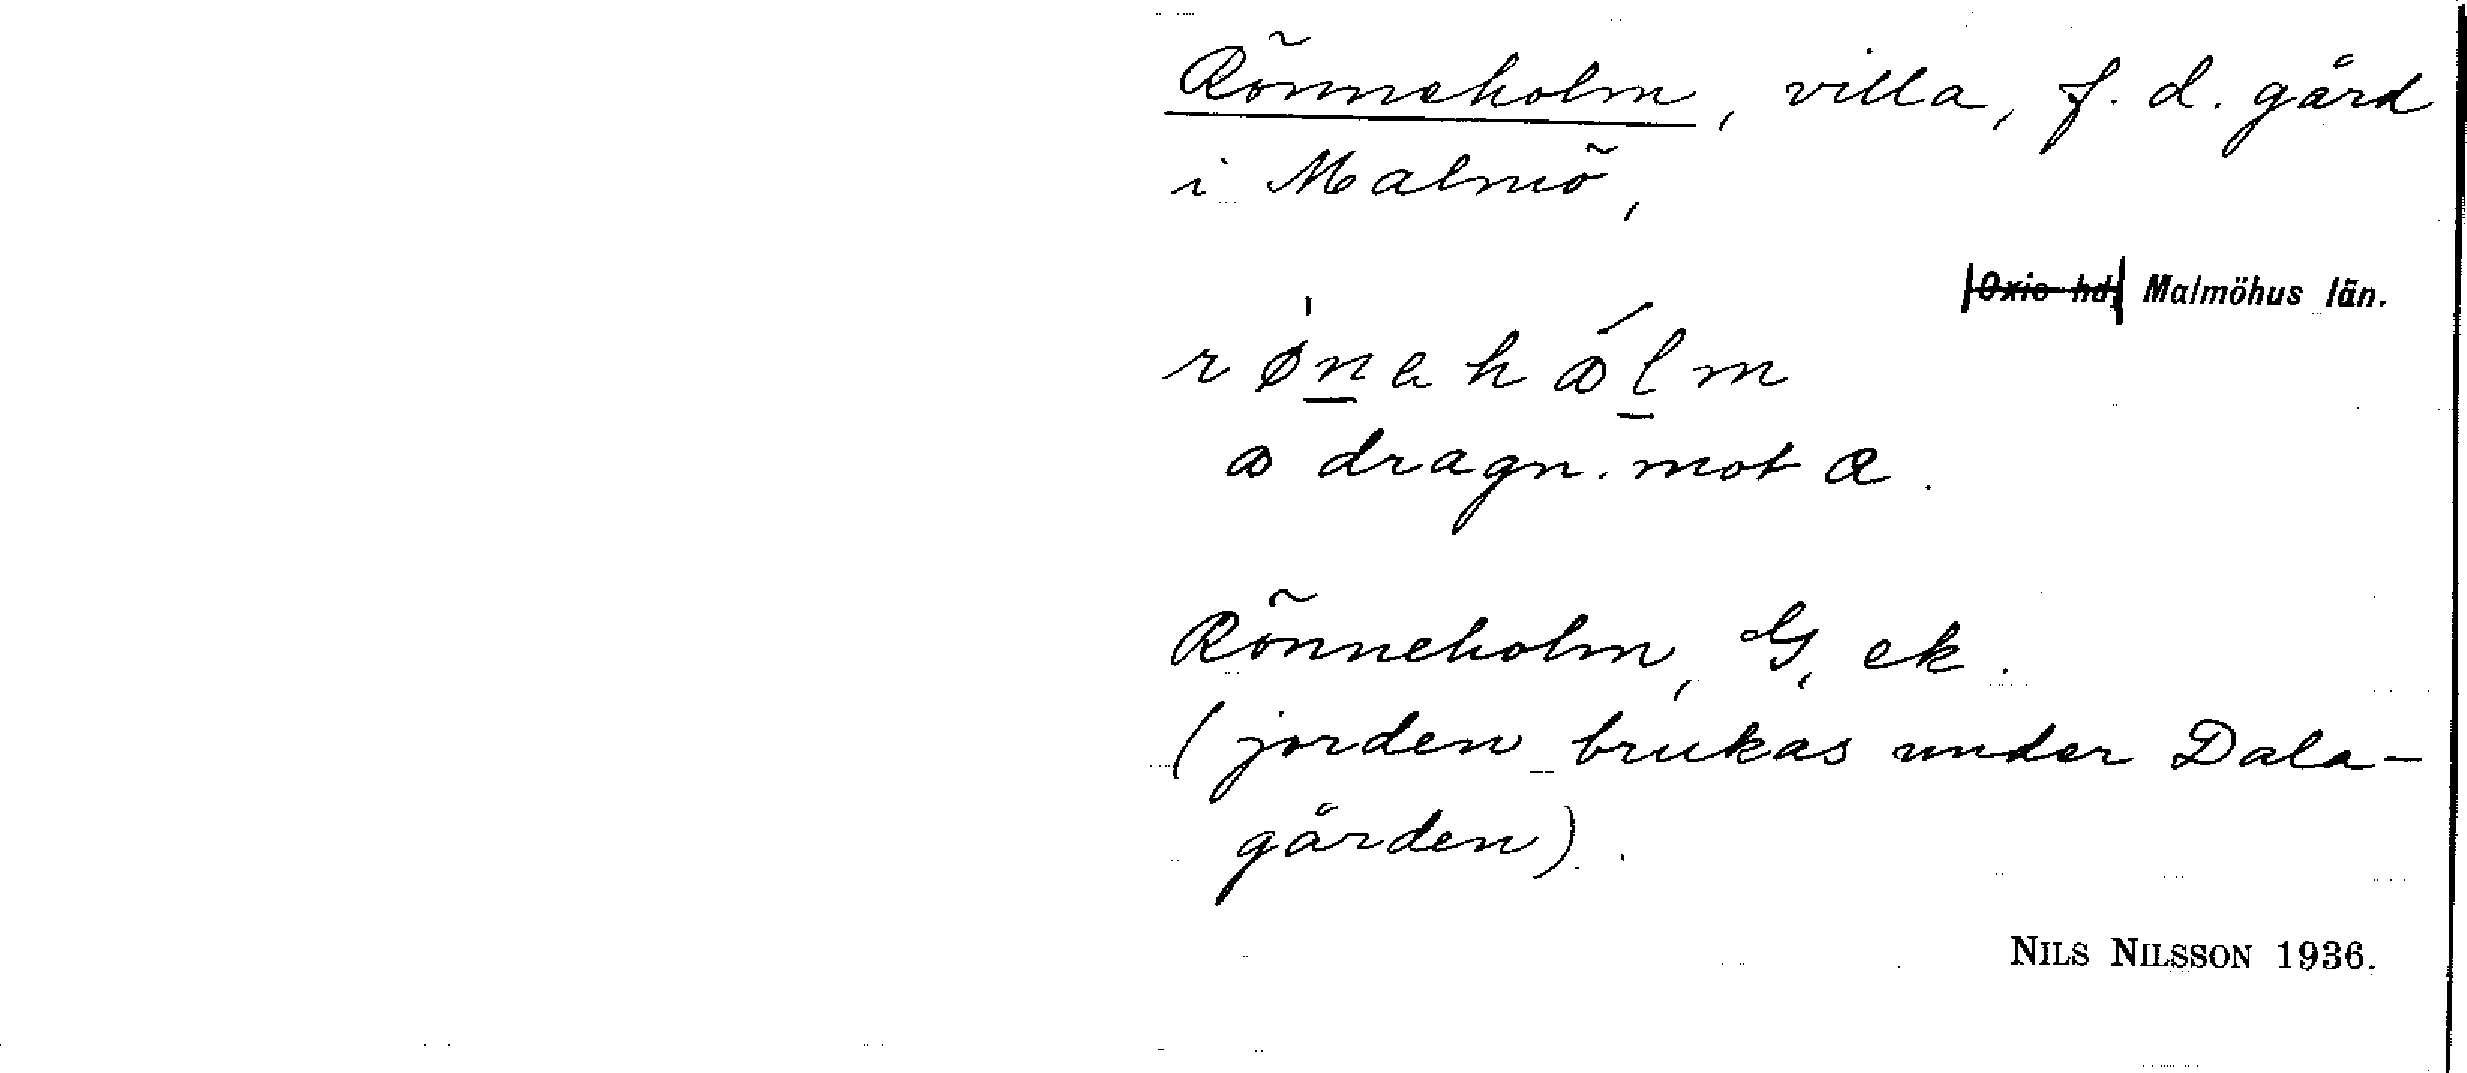 Rönneholm, villa, f. d. gård
i Malmö,
Oxie hd, Malmöhus län.
dragn. mot
Rönneholm, G, ek.
(jorden brukas under Dala-
gården).
NILS NILSSON 1936.